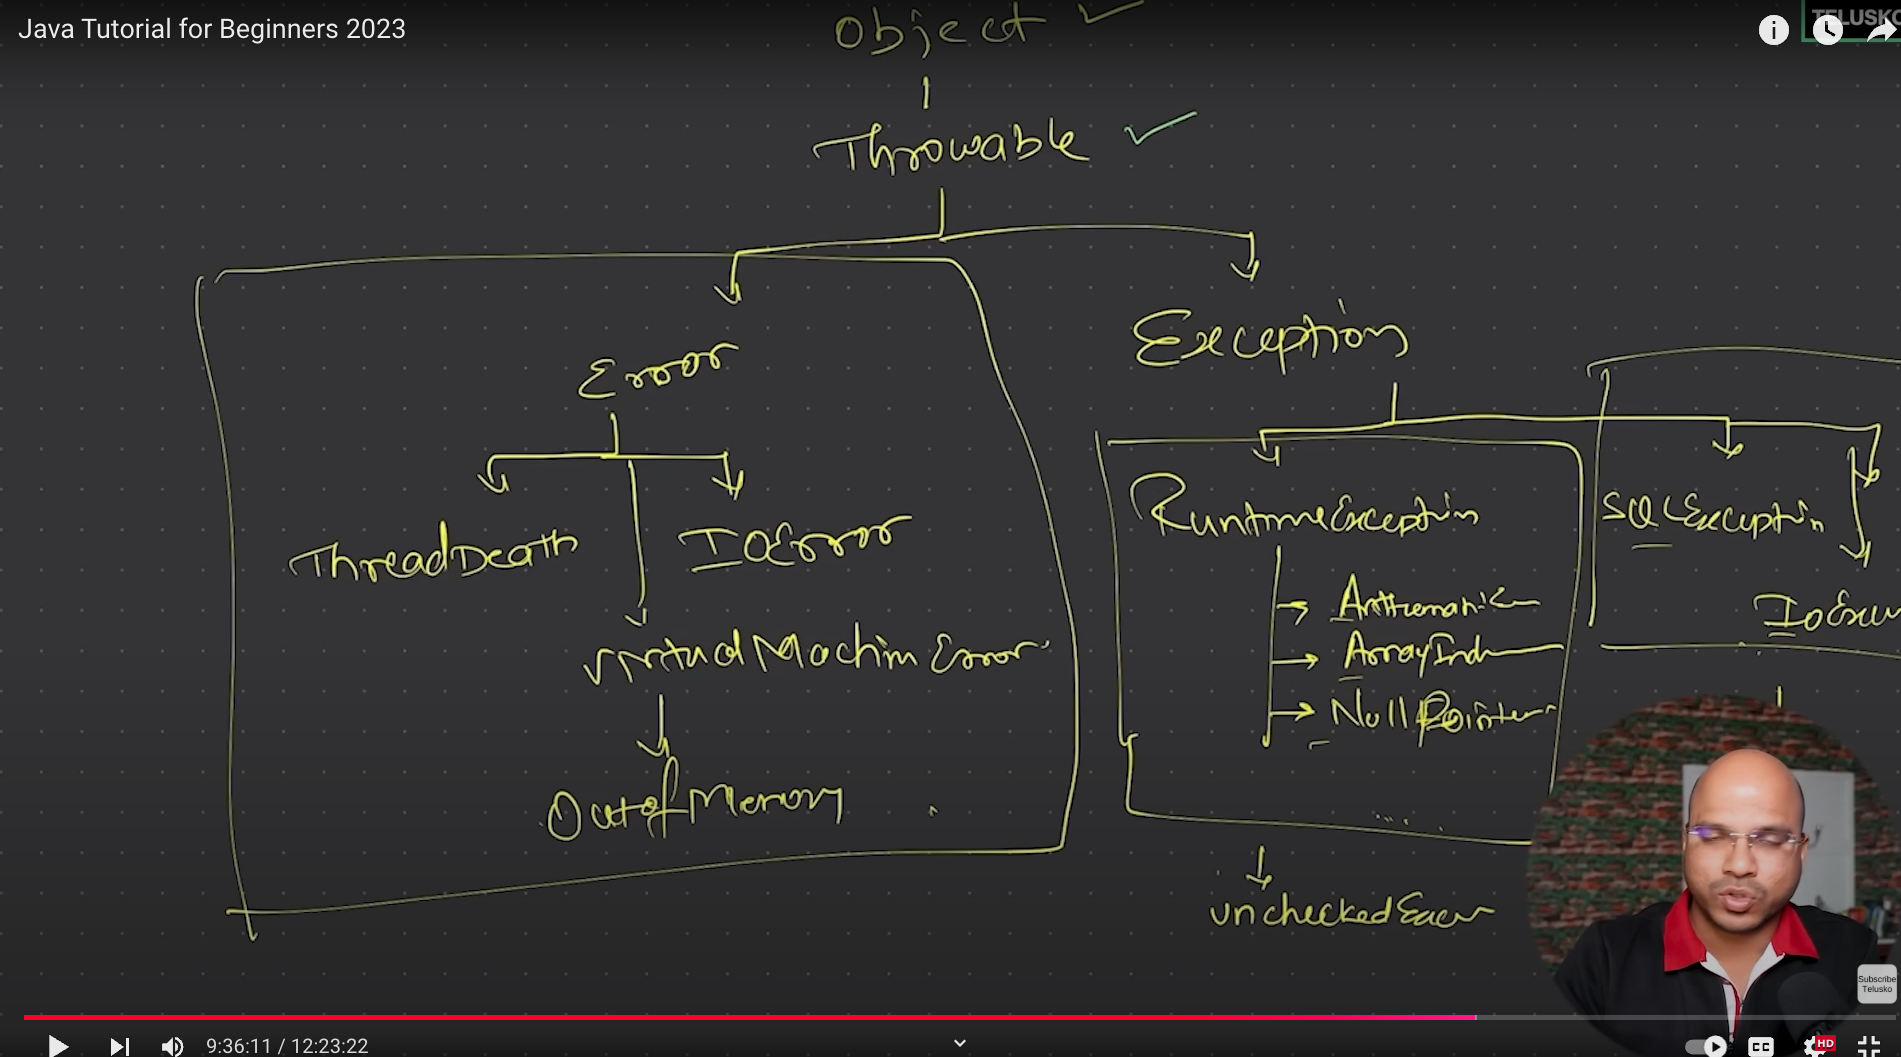 Java Tutorial for Beginners 2023
TELUSKO
Object
Throwable
Error
Exception
ThreadDeath
IOError
VirtualMachinError
OutofMemory
RuntimeException
Arithmatic
ArrayInd
NullPointer
SQLException
IoExce
unchecked
Subscribe
Telusko
9:36:11 / 12:23:22
CC
HD